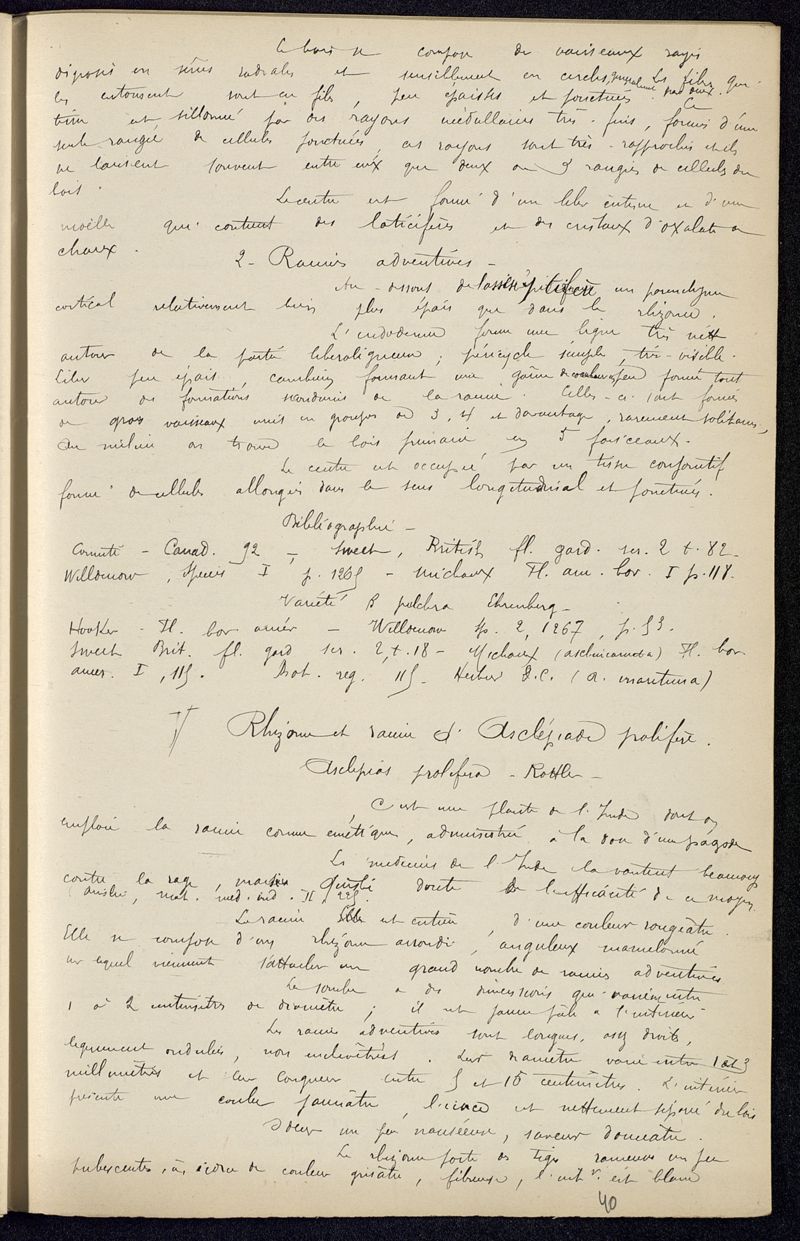 Le bois se compose de vaisseaux rayés
disposés en séries radiales et sensiblement en cercles. Les fibres qui
les entourent sont en file, peu épaisses et ponctuées. Ce
tissu est sillonné par des rayons médullaires très-fins, formés d'une
seule rangée de cellules ponctuées, ces rayons sont très-rapprochés et ils
ne laissent souvent entre eux que deux ou 3 rangées de cellules du
bois.
Le centre est formé d'un liber interne et d'une
moëlle qui contient des laticifères et des cristaux d'oxalate de
chaux.
2- Racines adventives -
Au-dessous de l'assise pilifère un parenchyme
cortical relativement bien plus épais que dans le rhizome.
L'endoderme forme une ligne très nette
autour de la partie libéroligneuse; péricycle simple, très-visible.
Liber peu épais, cambium formant une gaîne de couleur peu foncée tout
autour des formations secondaires de la racine. Celles-ci sont formées
de gros vaisseaux unis en groupes de 3, 4 et davantage, rarement solitaires,
Au milieu on trouve le bois primaire en 5 faisceaux.
Le centre est occupé par un tisse conjonctif
formé de cellules allongées dans le sens longitudinal et ponctués.
Bibliographie -
Cornuti - Canad. 92 - Sweet, British fl. gard. ser. 2 t. 82-
Willdenow, Species I p. 1265 - Michaux Fl. am. bor. I p. 118.
Variété B pulchra Ehrenberg -
Hooker - Fl. bor. amér - Willdenow Sp. 2, 1267, p. 53.
Sweet Brit. fl. gard ser. 2, t. 18 - Michaux Fl. bor.
amer. I, 115. Bot. reg. 115 - Herbier D.C. (A. maritima)
V Rhizome et racine d'Asclépiade prolifère.
Asclepias prolifera - Rottler -
C'est une plante de l'Inde dont on
emploie la racine comme émétique, administrée à la dose d'une pagode
Les médecins de l'Inde la vantent beaucoup
contre la rage, mais Ainslie doute de l'efficacité de ce moyen
Ainslie, mat. med. ind. II, 225.
La racine est entière, d'une couleur rougeâtre.
Elle se compose d'un rhizome arrondi, anguleux mamelonné
sur lequel viennent s'attacher un grand nombre de racines adventives
Le rhizome a des dimensions qui varient entre
1 à 2 centimètres de diamètre; il est jaune pâle à l'intérieur
Les racines adventives sont longues, assez droites,
légèrement ondulées, non enchevêtrées. Leur diamètre varie entre 1 et 3
millimètres et leur longueur entre 5 et 15 centimètres. L'intérieur
présente une couleur jaunâtre, l'écorce est nettement séparée du bois
Odeur un peu nauséeuse, saveur douceâtre.
Le rhizome porte des tiges rameuses un peu
pubescentes, à écorce de couleur grisâtre, fibreuse, l'int.r est blanc
40